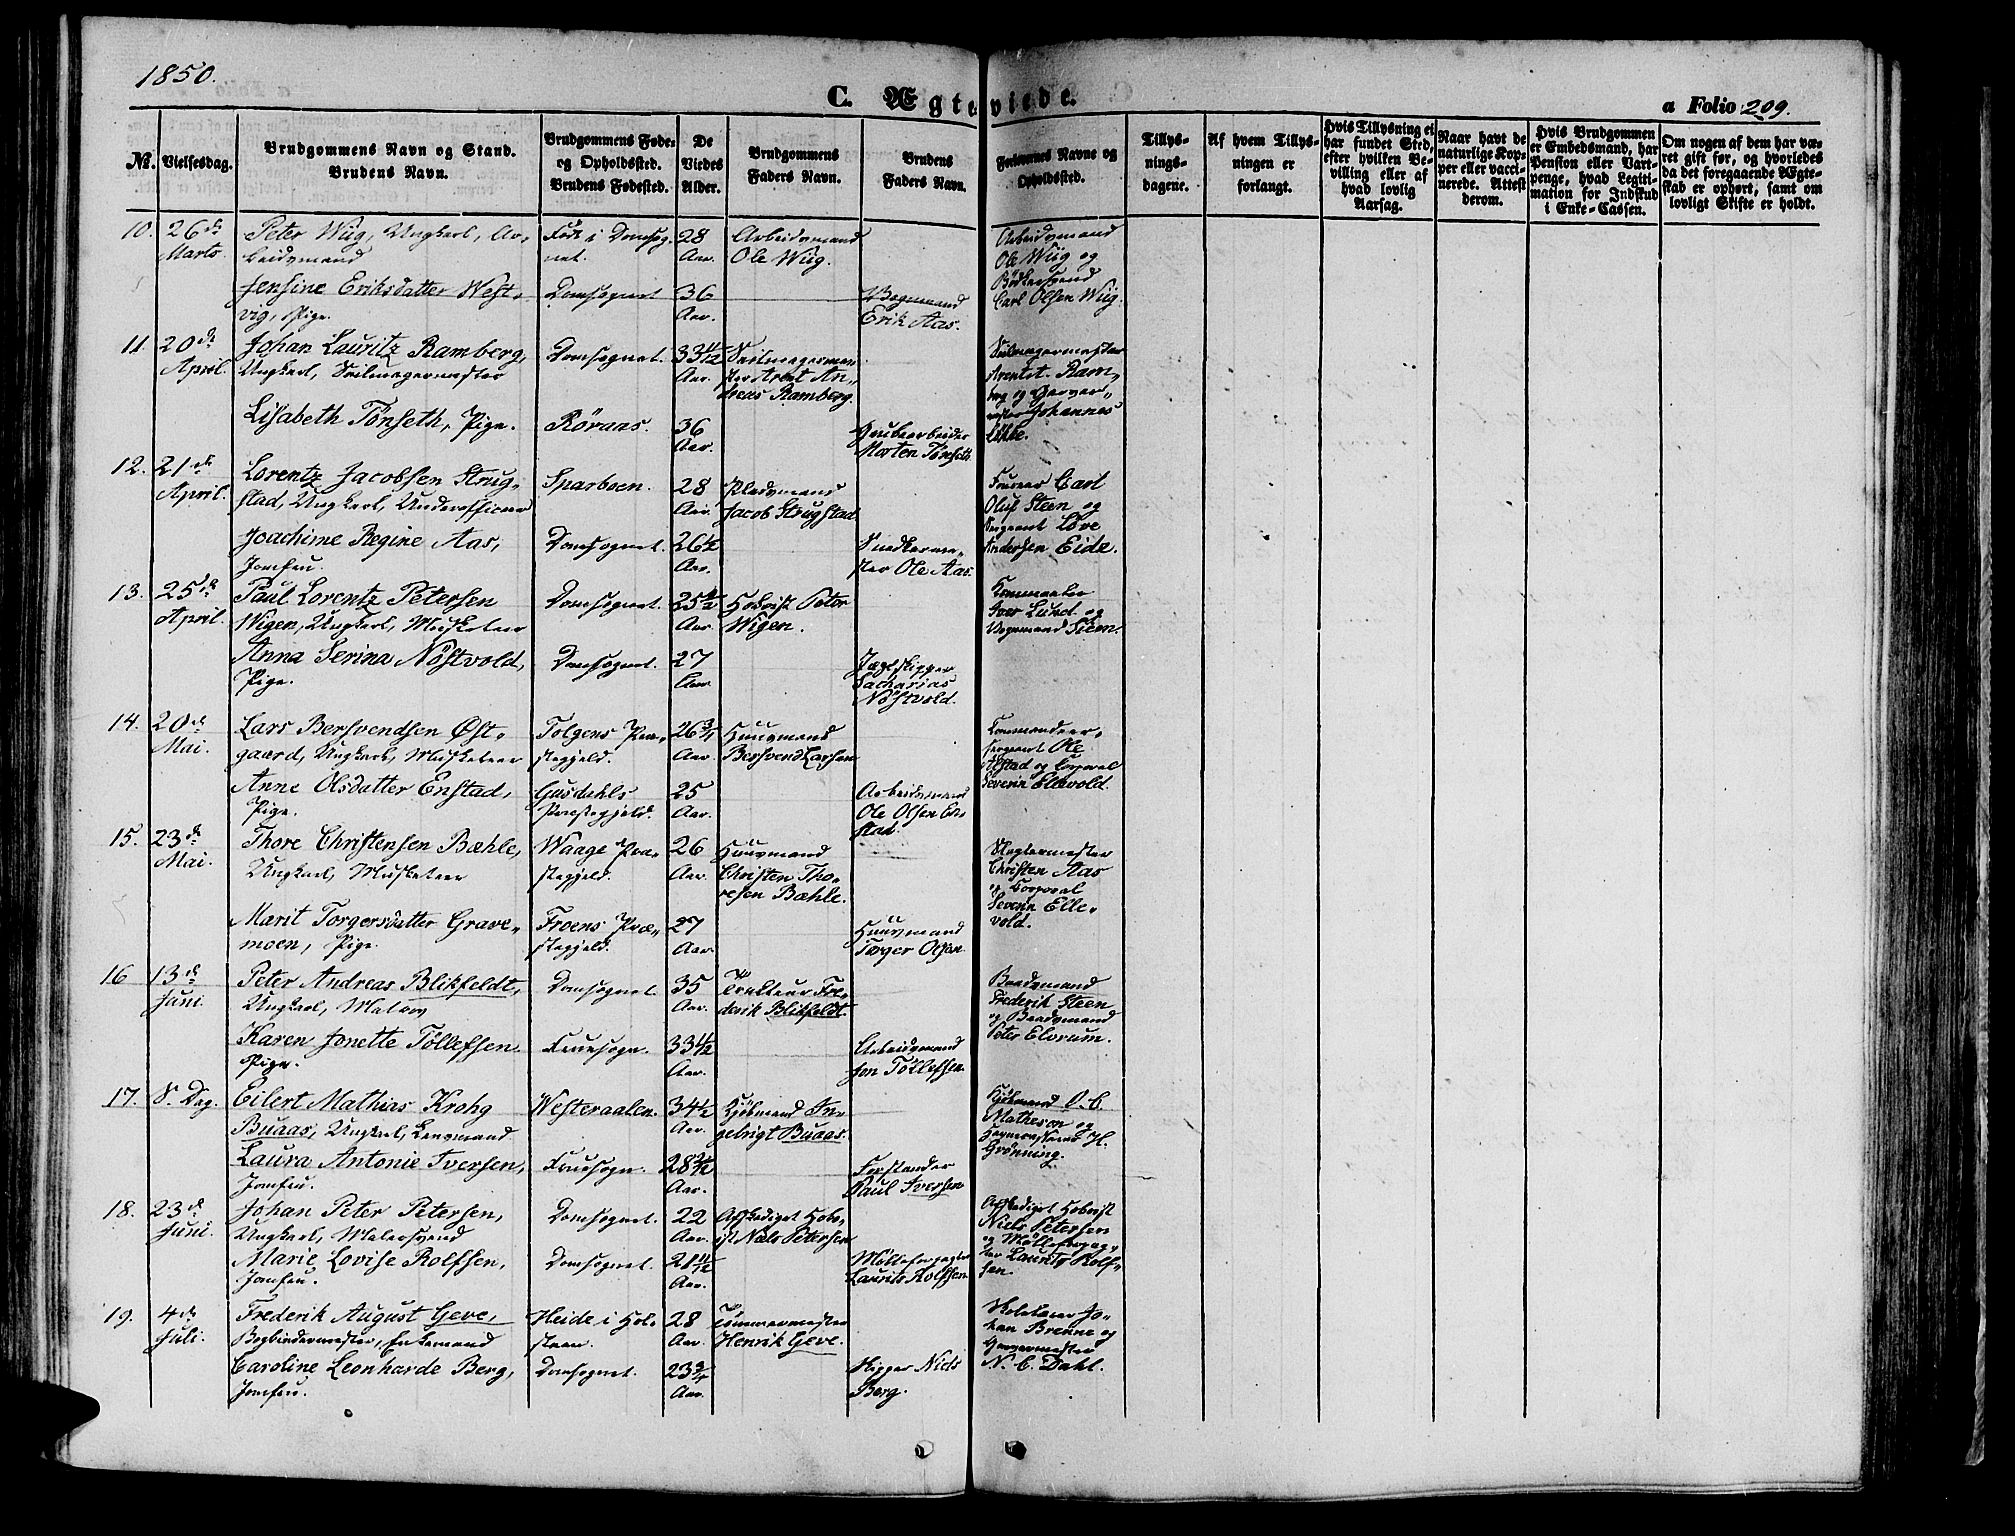 1850.
C. Ægteviede.
a Folio 209.
No.
Vielsesdag.
Brudgommens Navn og Stand.
Brudens Navn.
Brudgommens Føde-
og Opholdssted.
Brudens Fødested.
De
Viedes
Alder.
Brudgommens
Faders Navn.
Brudens
Faders Navn.
Forlovernes Navne og
Opholdssted.
Tillys-
nings-
dagene.
Af hvem Tillys-
ningen er
forlangt.
Hvis Tillysning ei
har fundet Sted,
efter hvilken Be-
villing eller af
hvad lovlig
Aarsag.
Naar havt de
naturlige Kop-
per eller vacci-
nerede. Attest
derom.
Hvis Brudgommen
er Embedsmand, har
Pension eller Vart-
penge, hvad Legiti-
mation for Indskud
i Enke-Cassen.
Om nogen af dem har væ-
ret gift før, og hvorledes
da det foregaaende Ægte-
skab er ophørt, samt om
lovligt Skifte er holdt.
10. 26de Marts
Peter Wiig, Ungkarl, Ar-
beidsmand
Født i Domsog-
net.
28 Aar.
Arbeidsmand
Ole Wiig.
Arbeidsmand
Ole Wiig og
Bødkersvend
Carl Olsen Wiig.
Jensine Eriksdatter West-
vig, Pige.
Domsognet
36 Aar.
Vognmand
Erik Aas.
11. 20de April.
Johan Lauritz Ramberg,
Ungkarl, Seilmagermester
Domsognet.
33 1/2 Aar.
Seilmagerme-
ster Arent An-
dreas Ramberg.
Seilmagermester
Arent A. Ram-
berg og Garver-
mester Johannes
Lykke.
Lisabeth Tønseth, Pige.
Røraas.
36 Aar.
Grubearbeider
Morten Tønseth
12. 21de April.
Lorentz Jacobsen Strug-
stad, Ungkarl, Underofficeer
Sparboen.
28 Aar.
Pladsmand
Jacob Strugstad
Foureer Carl
Oluf Steen og
Sergeant Love
Andersen Eide.
Joachime Regine Aas,
Jomfru.
Domsognet.
26 1/2 Aar.
Snedkerme-
ster Ole Aas.
13. 25de April.
Paul Lorentz Petersen
Wigen, Ungkarl, Musketeer
Domsognet.
25 1/2 Aar
Hoboist Peter
Wigen.
Iver Lund og
Vognmand Siem.
Anna Serina Nøstvold,
Pige.
Domsognet.
27 Aar
Jægtskipper
Zacharias
Nøstvold.
14. 20de Mai.
Lars Bersvendsen Øst-
gaard, Ungkarl, Musketeer
Tolgens Præ-
stegjeld.
26 3/4 Aar.
Huusmand
Bersvend Larsen
Commandeer-
sergeant Ole
Alstad og Corporal
Severin Ellevold.
Anne Olsdatter Enstad,
Pige.
Gusdahls
Præstegjeld.
25 Aar.
Arbeidsmand
Ole Olsen En-
stad.
15. 23de Mai.
Thore Christensen Bæhle,
Ungkarl, Musketeer
Waage Præ-
stegjeld.
26 Aar.
Huusmand
Christen Tho-
resen Bæhle.
Slagtermester
Christen Aas
og Corporal
Severin Elle-
vold.
Marit Torgersdatter Grave-
moen, Pige.
Froens Præ-
stegjeld.
27 Aar.
Huusmand
Torger Olsen
16 13de Juni
Peter Andreas Blikfeldt,
Ungkarl, Matros
Domsognet
35 Aar.
Tracteur Fre-
derik Blikfeldt.
Brandmand
Frederik Steen
og Brandmand
Peter Elvrum.
Karen Jonette Tøllefsen
Pige.
Fruesogn.
33 1/2 Aar.
Arbeidsmand
Jon Tøllefsen
17. S. Dag.
Eilert Mathias Krohg
Buaas, Ungkarl, Lensmand
Westeraalen.
34 1/2 Aar.
Kjøbmand In-
gebrigt Buaas.
Kjøbmand O. C.
Matheson og
H.
Grønning.
Laura Antonie Iversen,
Jomfru.
Fruesogn.
28 1/2 Aar.
Forstander
Paul Iversen
18. 23de Juni.
Johan Peter Petersen,
Ungkarl, Malersvend
Domsognet.
22 Aar.
Afskediget Hobo-
ist Niels Petersen
Afskediget Hoboist
Niels Petersen
og Mølleforpag-
ter Lauritz Rolf-
sen.
Marie Lovise Rolfsen,
Jomfru.
Domsognet.
21 1/2 Aar.
Mølleforpagter
Laurits Rolfsen
19. 4de Juli.
Frederik August Geve,
Bogbindermester, Enkemand
Heide i Hol-
steen.
28 Aar.
Tømmermester
Henrik Geve.
Skolelærer Jo-
han Brenne og
Garvermester
N. C. Dahl.
Caroline Leonharde Berg,
Jomfru.
Domsognet.
23 3/4 Aar.
Skipper Niels
Berg.